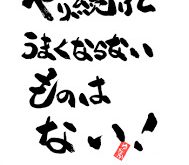 やり続けて
うまくならない
ものは
ない!